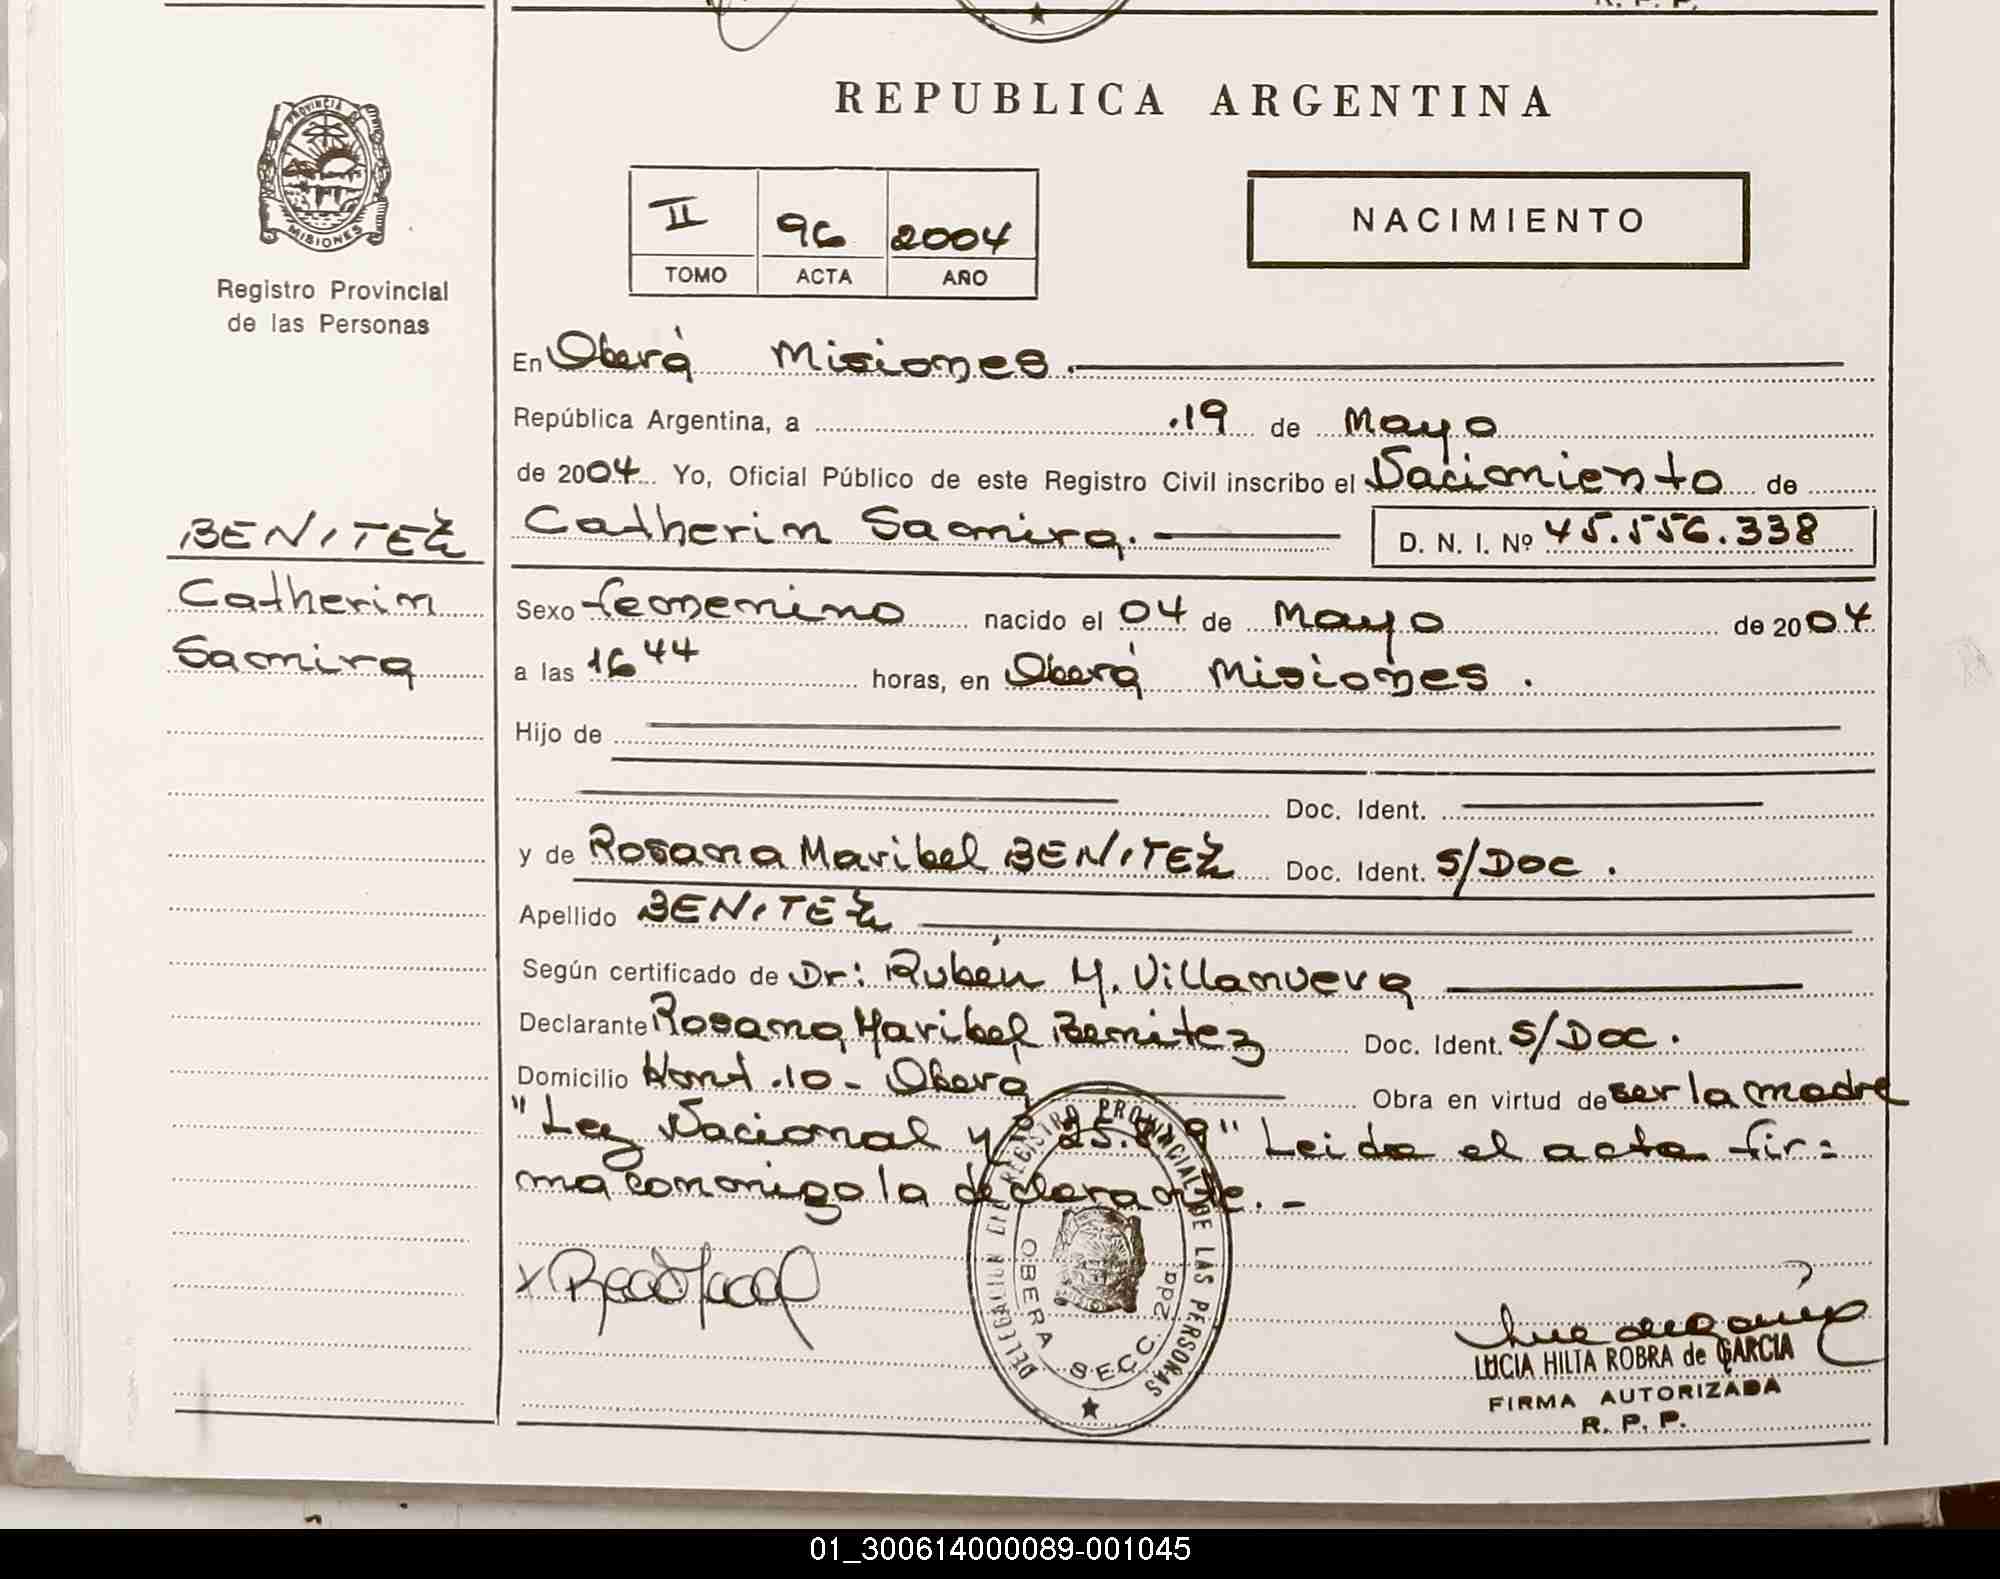 R. P. P.
REPUBLICA ARGENTINA
PROVINCIA DE
MISIONES
Registro Provincial
de las Personas
II 96 2004
TOMO ACTA AÑO
NACIMIENTO
En Oberá Misiones.
República Argentina, a .19 de Mayo
de 2004 Yo, Oficial Público de este Registro Civil inscribo el Nacimiento de
Catherin Samira. D. N. I. Nº 45.556.338
BENITEZ
Catherin
Samira
Sexo femenino nacido el 04 de Mayo de 2004
a las 16 44 horas, en Oberá Misiones .
Hijo de
Doc. Ident.
y de Rosana Maribel BENITEZ Doc. Ident. S/DOC .
Apellido BENITEZ
Según certificado de Dr: Rubén M. Villanueva
Declarante Rosana Maribel Benitez Doc. Ident. S/DOC .
Domicilio Hont .10 - Oberá Obra en virtud de ser la madre
"Ley Nacional Nº 25.819" Leida el acta fir=
ma conmigo la declarante. -
DELEGACION DEL REGISTRO PROVINCIAL DE LAS PERSONAS
OBERA SECC. 2da
LUCIA HILTA ROBRA de GARCIA
FIRMA AUTORIZADA
R. P. P.
01_300614000089-001045